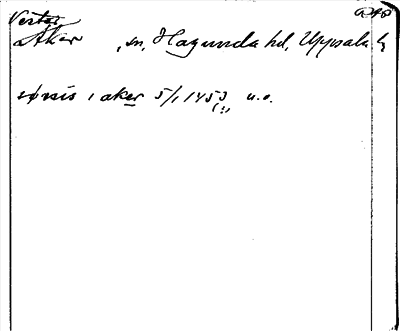 Vester
Åker , sn, Hagunda hd, Uppsala l.
i aker 5/1 1453 u.o.